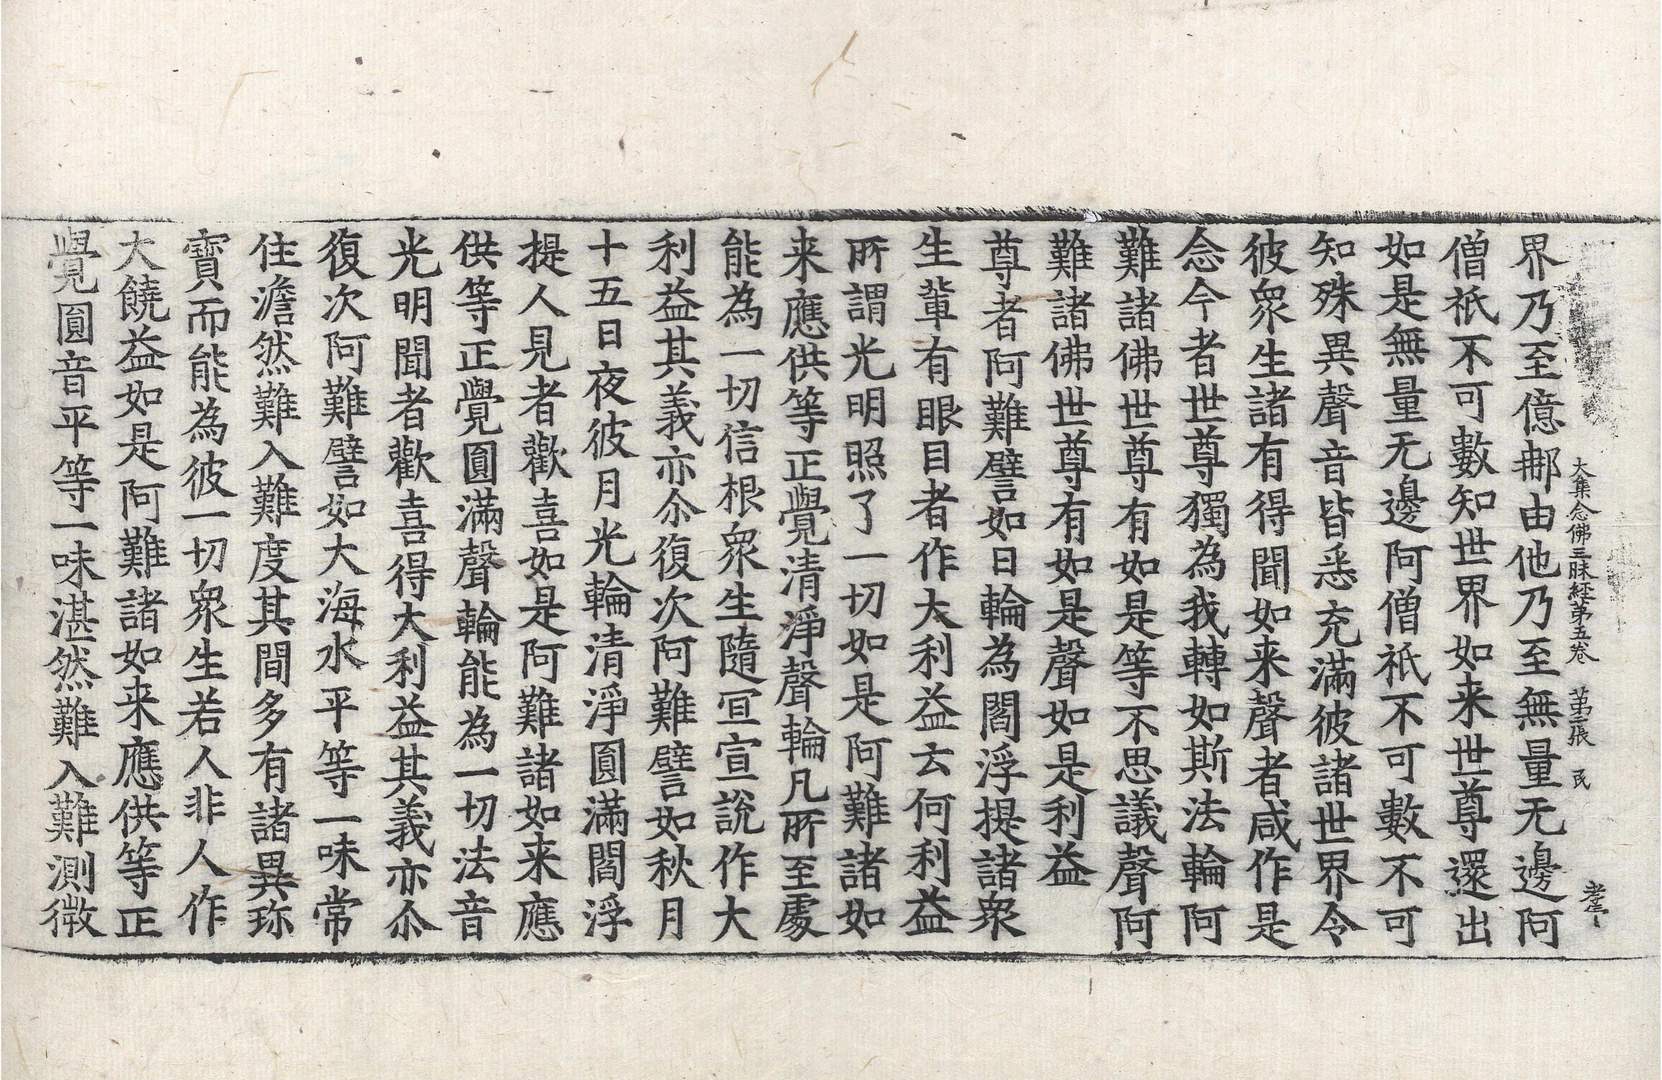 大集念佛三昧經第五卷 第二張 民
界乃至億那由他乃至無量无邊阿
僧祇不可數知世界如来世尊還出
如是無量无邊阿僧祇不可數不可
知殊異聲音皆悉充滿彼諸世界令
彼衆生諸有得聞如来聲者咸作是
念今者世尊獨為我轉如斯法輪阿
難諸佛世尊有如是等不思議聲阿
難諸佛世尊有如是聲如是利益
尊者阿難譬如日輪為閻浮提諸衆
生輩有眼目者作大利益云何利益
所謂光明照了一切如是阿難諸如
来應供等正覺清淨聲輪凡所至處
能為一切信根衆生隨宜宣說作大
利益其義亦尒復次阿難譬如秋月
十五日夜彼月光輪清淨圓滿閻浮
提人見者歡喜如是阿難諸如来應
供等正覺圓滿聲輪能為一切法音
光明聞者歡喜得大利益其義亦尒
復次阿難譬如大海水平等一味常
住澹然難入難度其間多有諸異珎
寶而能為彼一切衆生若人非人作
大饒益如是阿難諸如来應供等正
覺圓音平等一味湛然難入難測微